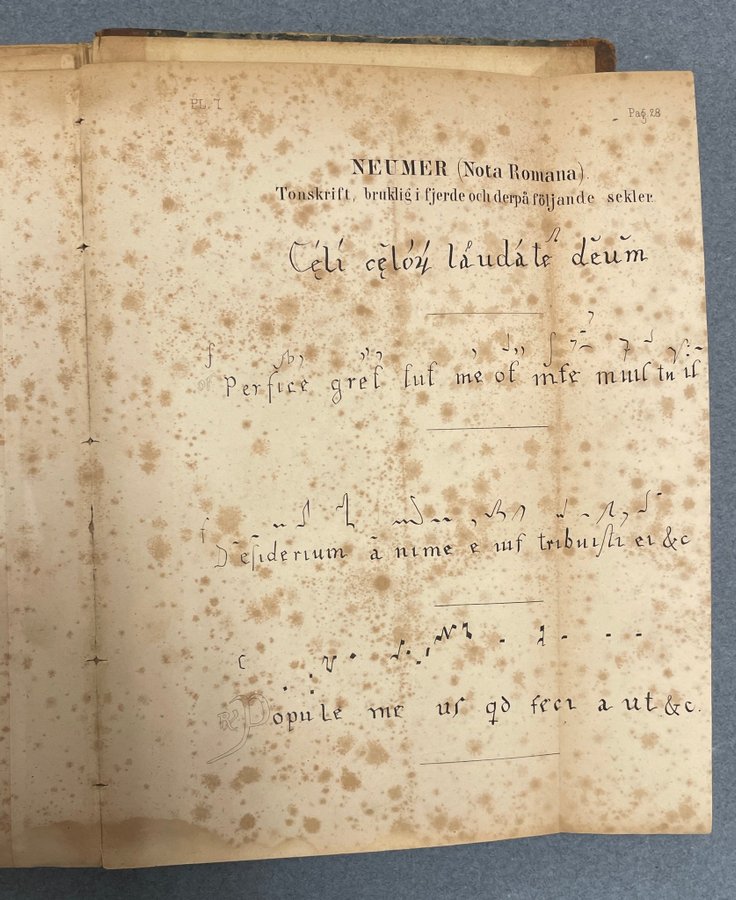 PL. 1
Pag. 28
NEUMER (Nota Romana).
Tonskrift, bruklig i fjerde och derpå följande sekler.
Cęli cęloꝝ laudate dēum
Perfice gret ſuſ me oſ in te
Deſiderium anime e iuſ tribuiſti ei &c
Popule me uſ qd feci a ut &c.